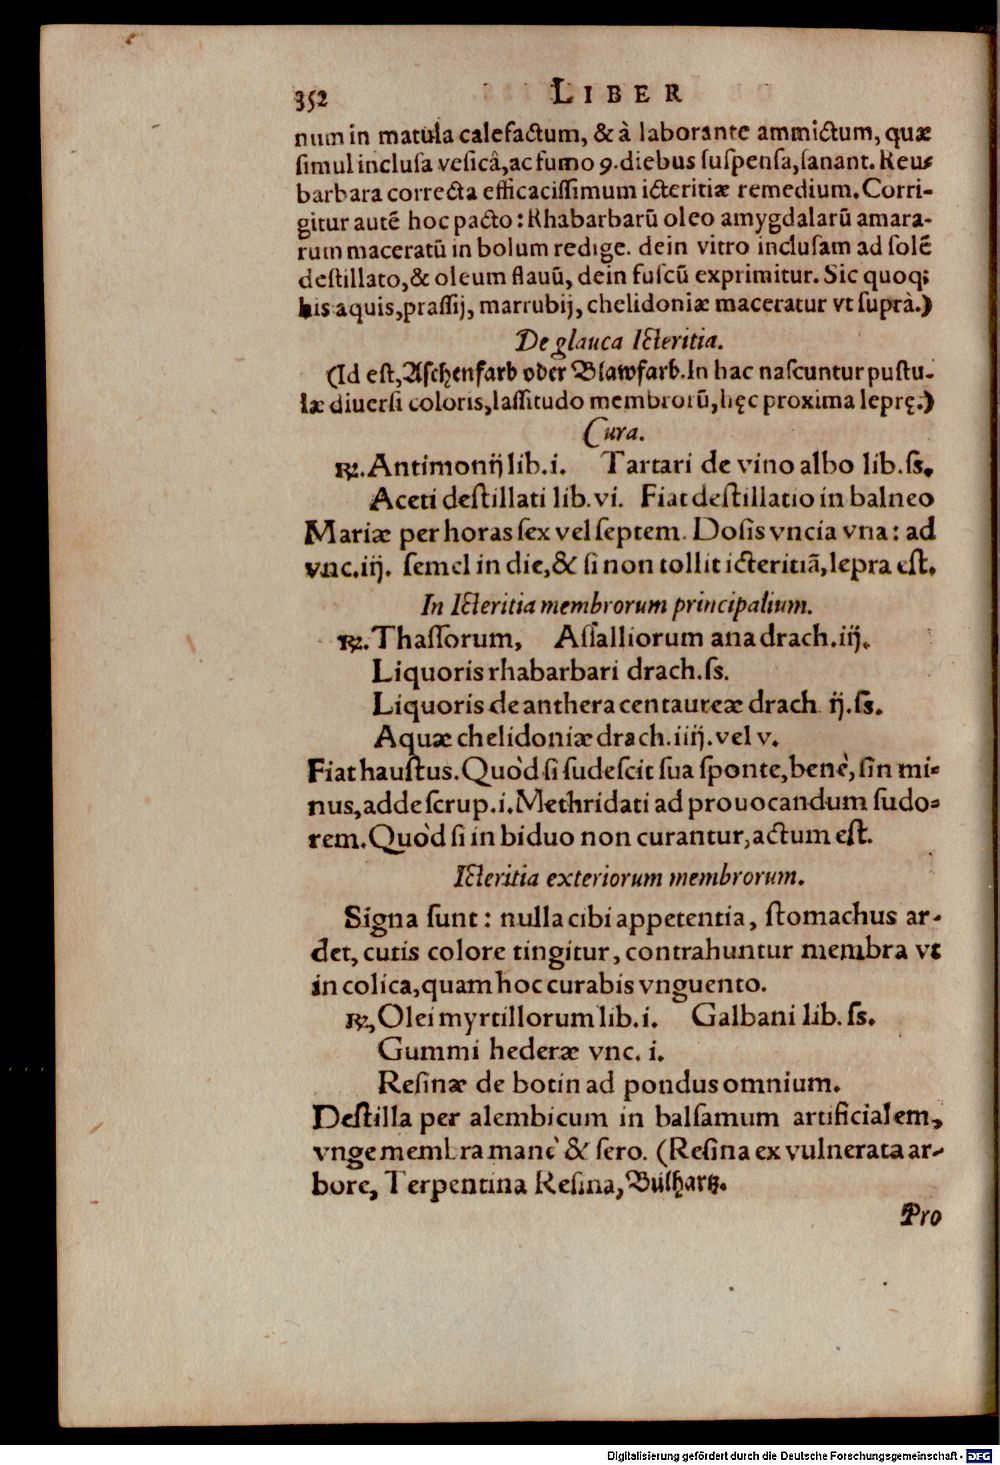 352 LIBER
num in matula calefactum, & à laborante ammictum, quæ
ſimul incluſa veſicâ, ac fumo 9. diebus ſuſpenſa, ſanant. Reu-
barbara correcta efficaciſſimum icteritiæ remedium. Corri-
gitur autē hoc pacto: Rhabarbarū oleo amygdalarū amara-
rum maceratū in bolum redige. dein vitro incluſam ad ſolē
deſtillato, & oleum flauū, dein fuſcū exprimitur. Sic quoq;
his aquis, praſſij, marrubij, chelidoniæ maceratur vt ſuprà.)
De glauca Icteritia.
(Id eſt, Aſchenfarb oder Blawfarb. In hac naſcuntur puſtu-
læ diuerſi coloris, laſſitudo membrorū, hęc proxima leprę.)
Cura.
℞. Antimonij lib. i. Tartari de vino albo lib. ſs.
Aceti deſtillati lib. vi. Fiat deſtillatio in balneo
Mariæ per horas ſex vel ſeptem. Doſis vncia vna: ad
vnc. iij. ſemel in die, & ſi non tollit icteritiā, lepra eſt.
In Icteritia membrorum principalium.
℞. Thaſſorum, Aſſalliorum ana drach. iij.
Liquoris rhabarbari drach. ſs.
Liquoris de anthera centaureæ drach. ij. ſs.
Aquæ chelidoniæ drach. iiij. vel v.
Fiat hauſtus. Quòd ſi ſudeſcit ſua ſponte, benè, ſin mi-
nus, adde ſcrup. i. Methridati ad prouocandum ſudo-
rem. Quòd ſi in biduo non curantur, actum eſt.
Icteritia exteriorum membrorum.
Signa ſunt: nulla cibi appetentia, ſtomachus ar-
det, cutis colore tingitur, contrahuntur membra vt
in colica, quam hoc curabis vnguento.
℞, Olei myrtillorum lib. i. Galbani lib. ſs.
Gummi hederæ vnc. i.
Reſinæ de botin ad pondus omnium.
Deſtilla per alembicum in balſamum artificialem,
vnge membra manè & ſero. (Reſina ex vulnerata ar-
bore, Terpentina Reſina, Bülhartz.
Pro
Digitalisierung gefördert durch die Deutsche Forschungsgemeinschaft - DFG